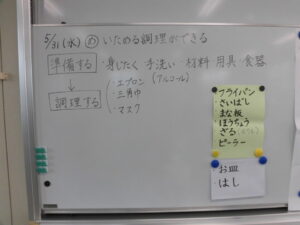 5/31(水) め いためる調理ができる
準備する ・身じたく 手洗い 材料 用具・食器
(アルコール)
↓
・エプロン
・三角巾
・マスク
調理する
フライパン
さいばし
まな板
ほうちょう
ざる
ピーラー
お皿
はし